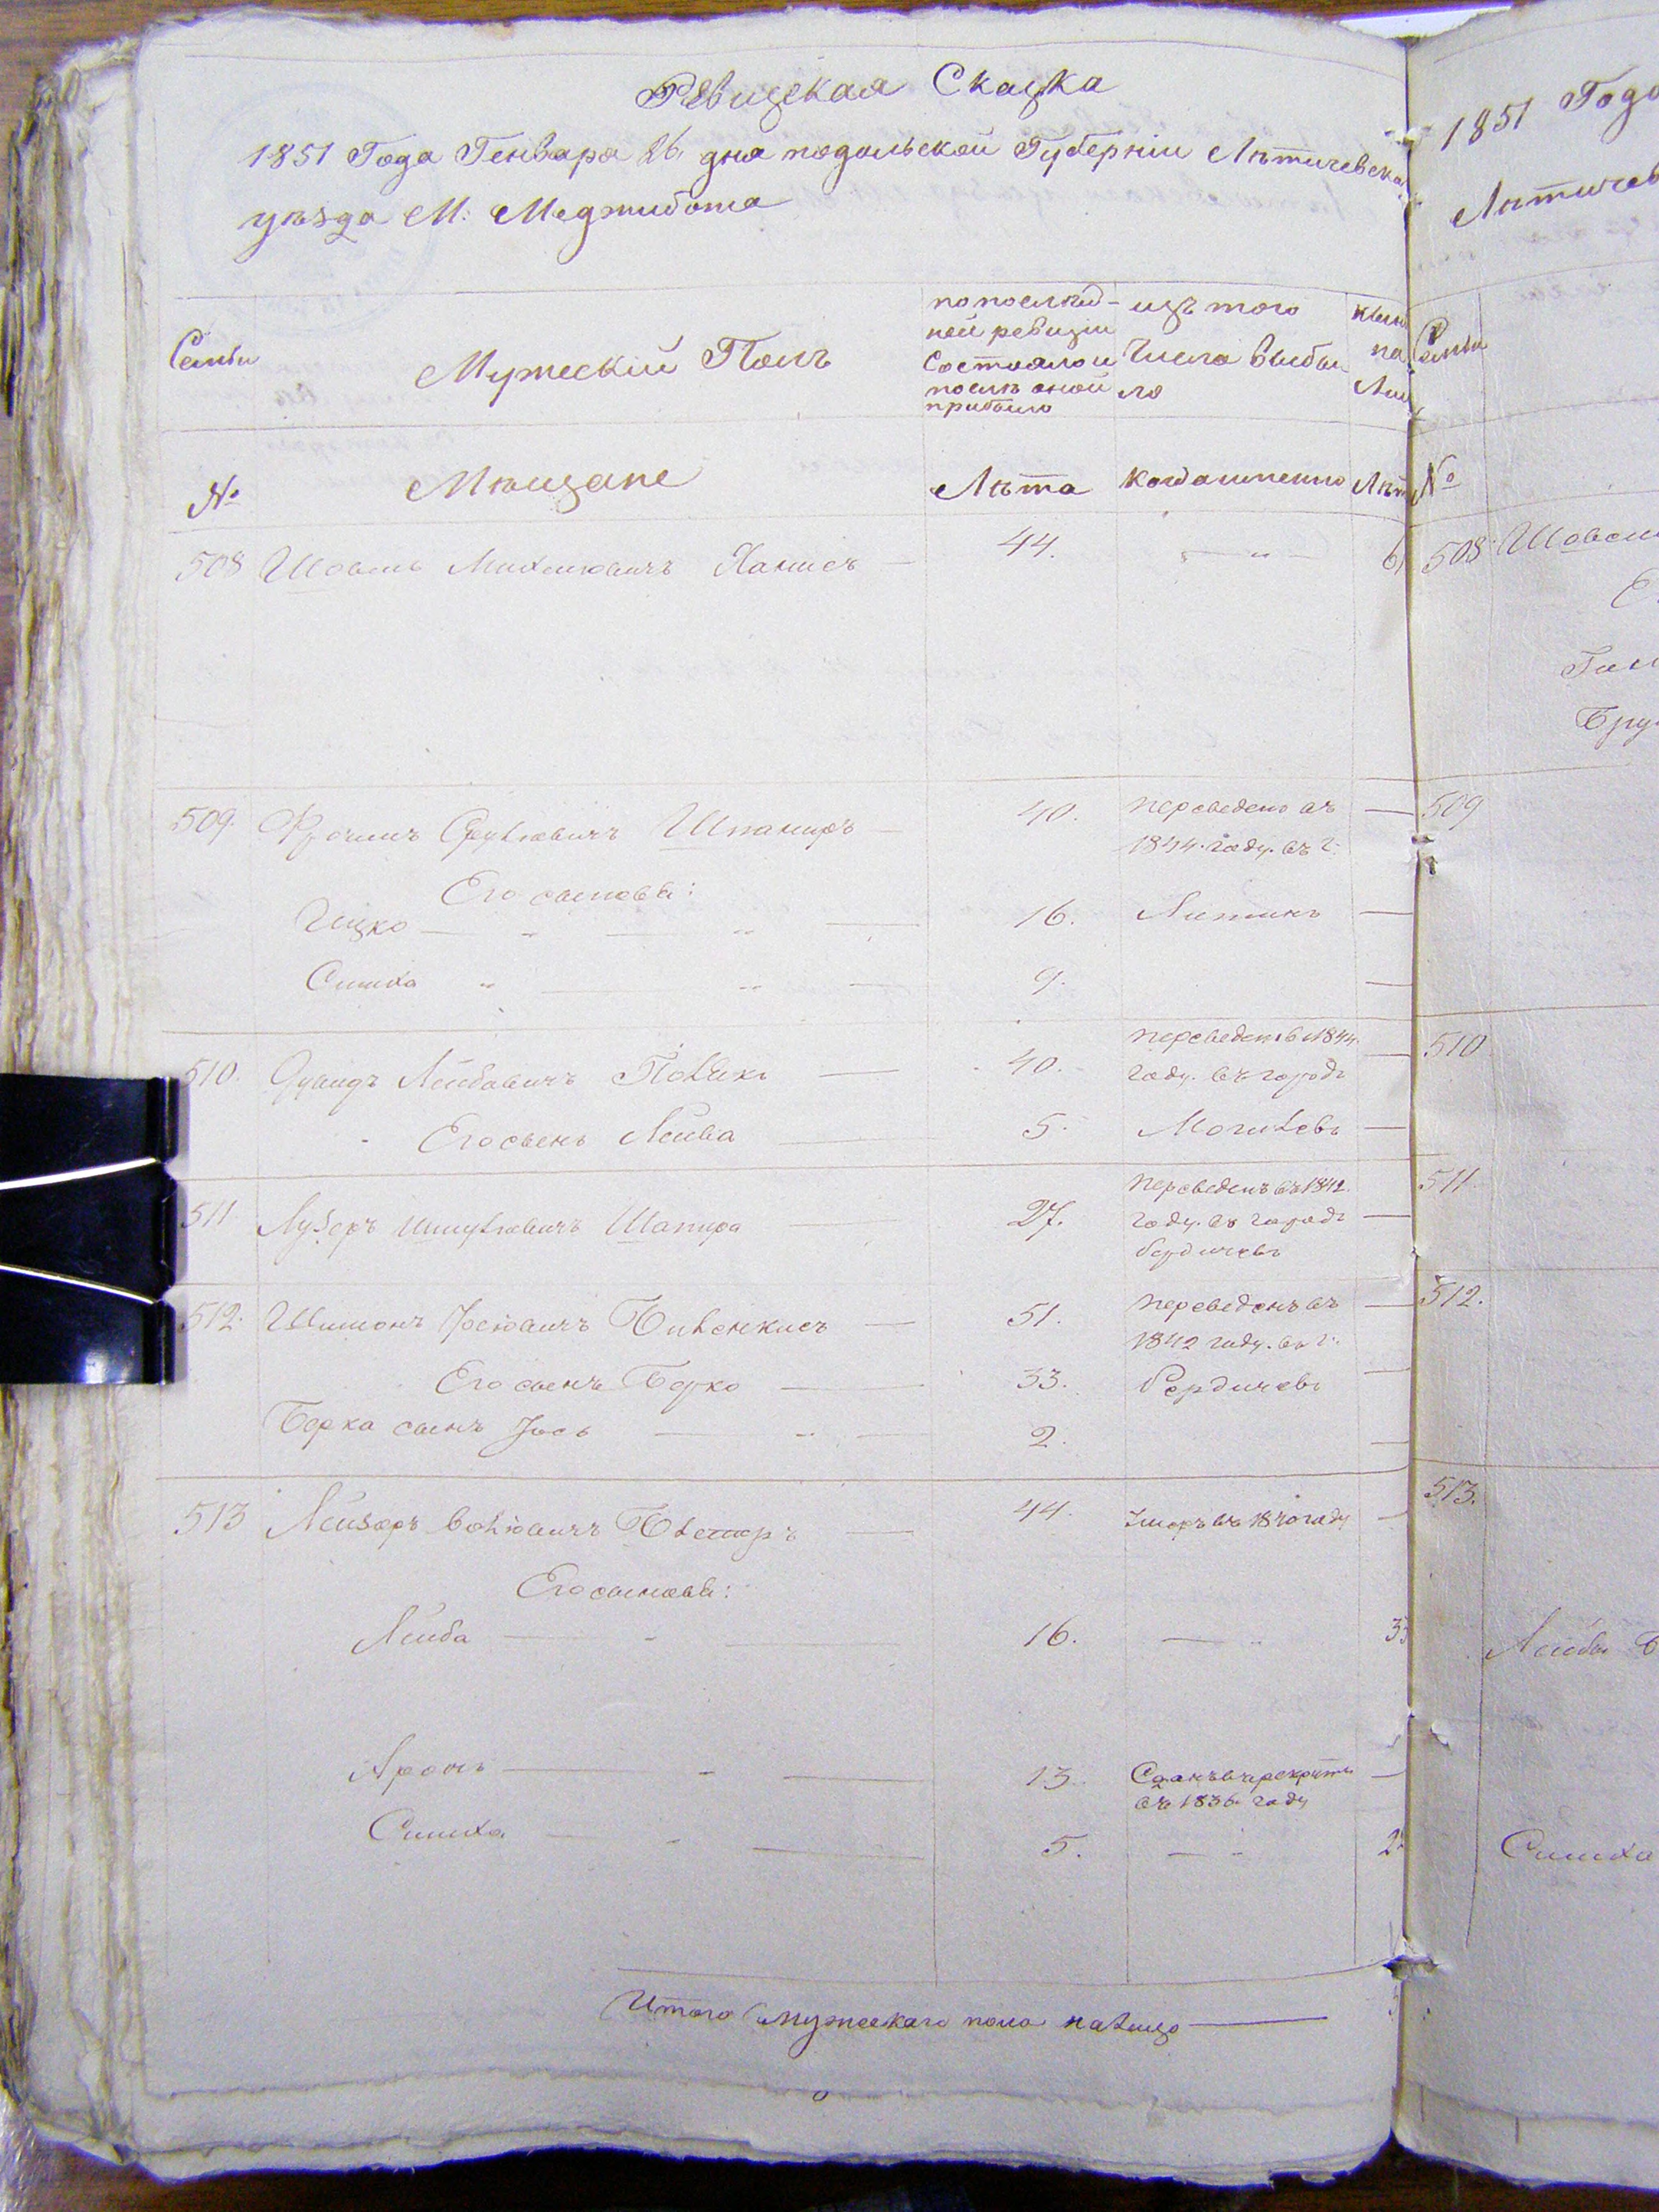 Ревизская Сказка
1851 Года Генваря 26. дня подольской Губерніи Лѣтичевска
уѣзда М: Меджибожа
Семьи
Мужескій Полъ
по послѣд-
ней ревизіи
Состояло и
послѣ оной
прибыло
изъ того
Числа выбы
ло
№
Мѣщане
Лѣта
когда именно
Лѣт
508 Шоелъ
44.
6
509. Фроимъ Сруліовичъ Шпаниръ
40.
переведено въ
1844. году. въ г:
Его сыновья:
Ицко
16.
Литинъ
Симха
9.
510. Дувидъ Лейбовичъ
40.
переведенъ въ 1844.
году. въ городъ
Его сынъ Лейба
5.
Могилевъ
511 Лузеръ Шмуліовичъ Шапира
27.
переведенъ въ 1842.
году. въ городъ
бердичевъ
512. Шимонъ Іосіовичъ
51.
переведенъ въ
1842 году. въ г:
Его сынъ Берко
33.
Бердичевъ
Берка сынъ Іось
2.
513 Лейзеръ Волковичъ
44.
Умеръ въ 1840 году
Его сыновья:
Лейба
16.
3
Аронъ
13.
Сданъ въ рекруты
въ 1836 году
Симха
5.
2
Итого мужескаго пола налицо
1851 Года
Лѣтичев
Семьи
№
508 Шоел
509
510
511
512.
513.
Лейбы
Симха